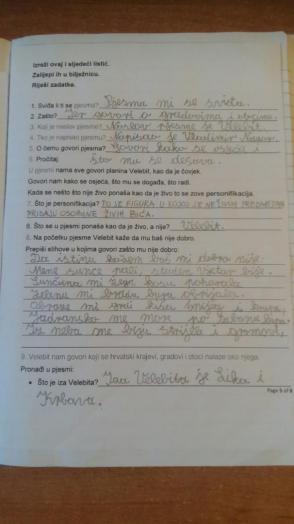 Izreži ovaj i sljedeći listić.
Zalijepi ih u bilježnicu.
Riješi zadatke.
1. Sviđa li ti se pjesma? Pjesma mi se sviđa.
2. Zašto? Jer govori o gradovima i
3. Koji je naslov pjesme? Naslov pjesme je Velebit.
4. Tko je napisao pjesmu? Napisao je Vladimir Nazor.
5. O čemu govori pjesma? Govori kako se osjeća i
6. Pročitaj što mu se dešava.
U pjesmi nama sve govori planina Velebit, kao da je čovjek.
Govori nam kako se osjeća, što mu se događa, što radi.
Kada se nešto što nije živo ponaša kao da je živo to se zove personifikacija.
7. Što je personifikacija? TO JE FIGURA U KOJOJ SE NEŽIVIM PREDMETIMA
PRIDAJU OSOBINE ŽIVIH BIĆA.
8. Što se u pjesmi ponaša kao da je živo, a nije? Velebit.
6. Na početku pjesme Velebit kaže da mu baš nije dobro.
Prepiši stihove u kojima govori zašto mu nije dobro.
Da istinu kažem baš mi dobro nije.
Mene sunce pali, studen vjetar bije.
Sunčana mi žega kosu
mi bradu bura
mi
Jadransko me more po
Iz neba me biju strijele i gromovi.
9. Velebit nam govori koji se hrvatski krajevi, gradovi i otoci nalaze oko njega.
Pronađi u pjesmi:
• Što je iza Velebita? Iza Velebita je Lika i
Krbava.